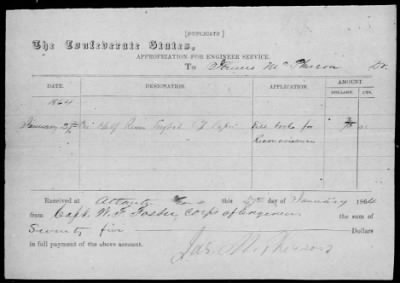 [DUPLICATE]
The Confederate States,
APPROPRIATION FOR ENGINEER SERVICE.
To James McPherson Dr.
DATE. DESIGNATION. APPLICATION. AMOUNT
DOLLARS CTS.
1864
January 27th Half Ream Field books for
Reconnaissance
Received at Atlanta this 27th day of January 1864
from Capt. W. F. Foster, Corps of Engineers the sum of
Seventy five Dollars
in full payment of the above account.
Jas. McPherson